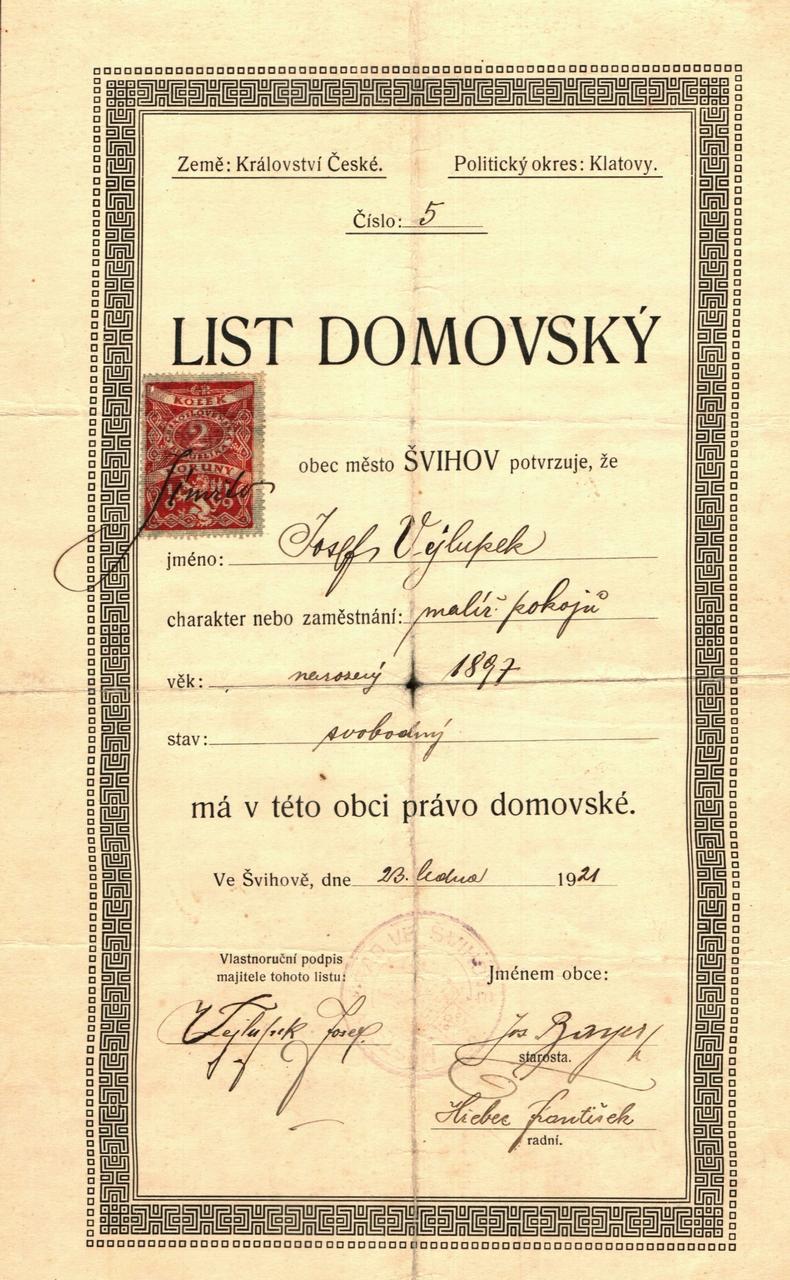 Země: Království České. Politický okres: Klatovy.
Číslo: 5
LIST DOMOVSKÝ
KOLEK
2
KORUNY
obec město ŠVIHOV potvrzuje, že
jméno: Josef Výlupek
charakter nebo zaměstnání: malíř pokojů
věk: narozený 1897
stav: svobodný
má v této obci právo domovské.
Ve Švihově, dne 23. ledna 1921
Vlastnoruční podpis
majitele tohoto listu:
Jménem obce:
Vejlupek Josef
Jos Bayer
starosta.
František
radní.